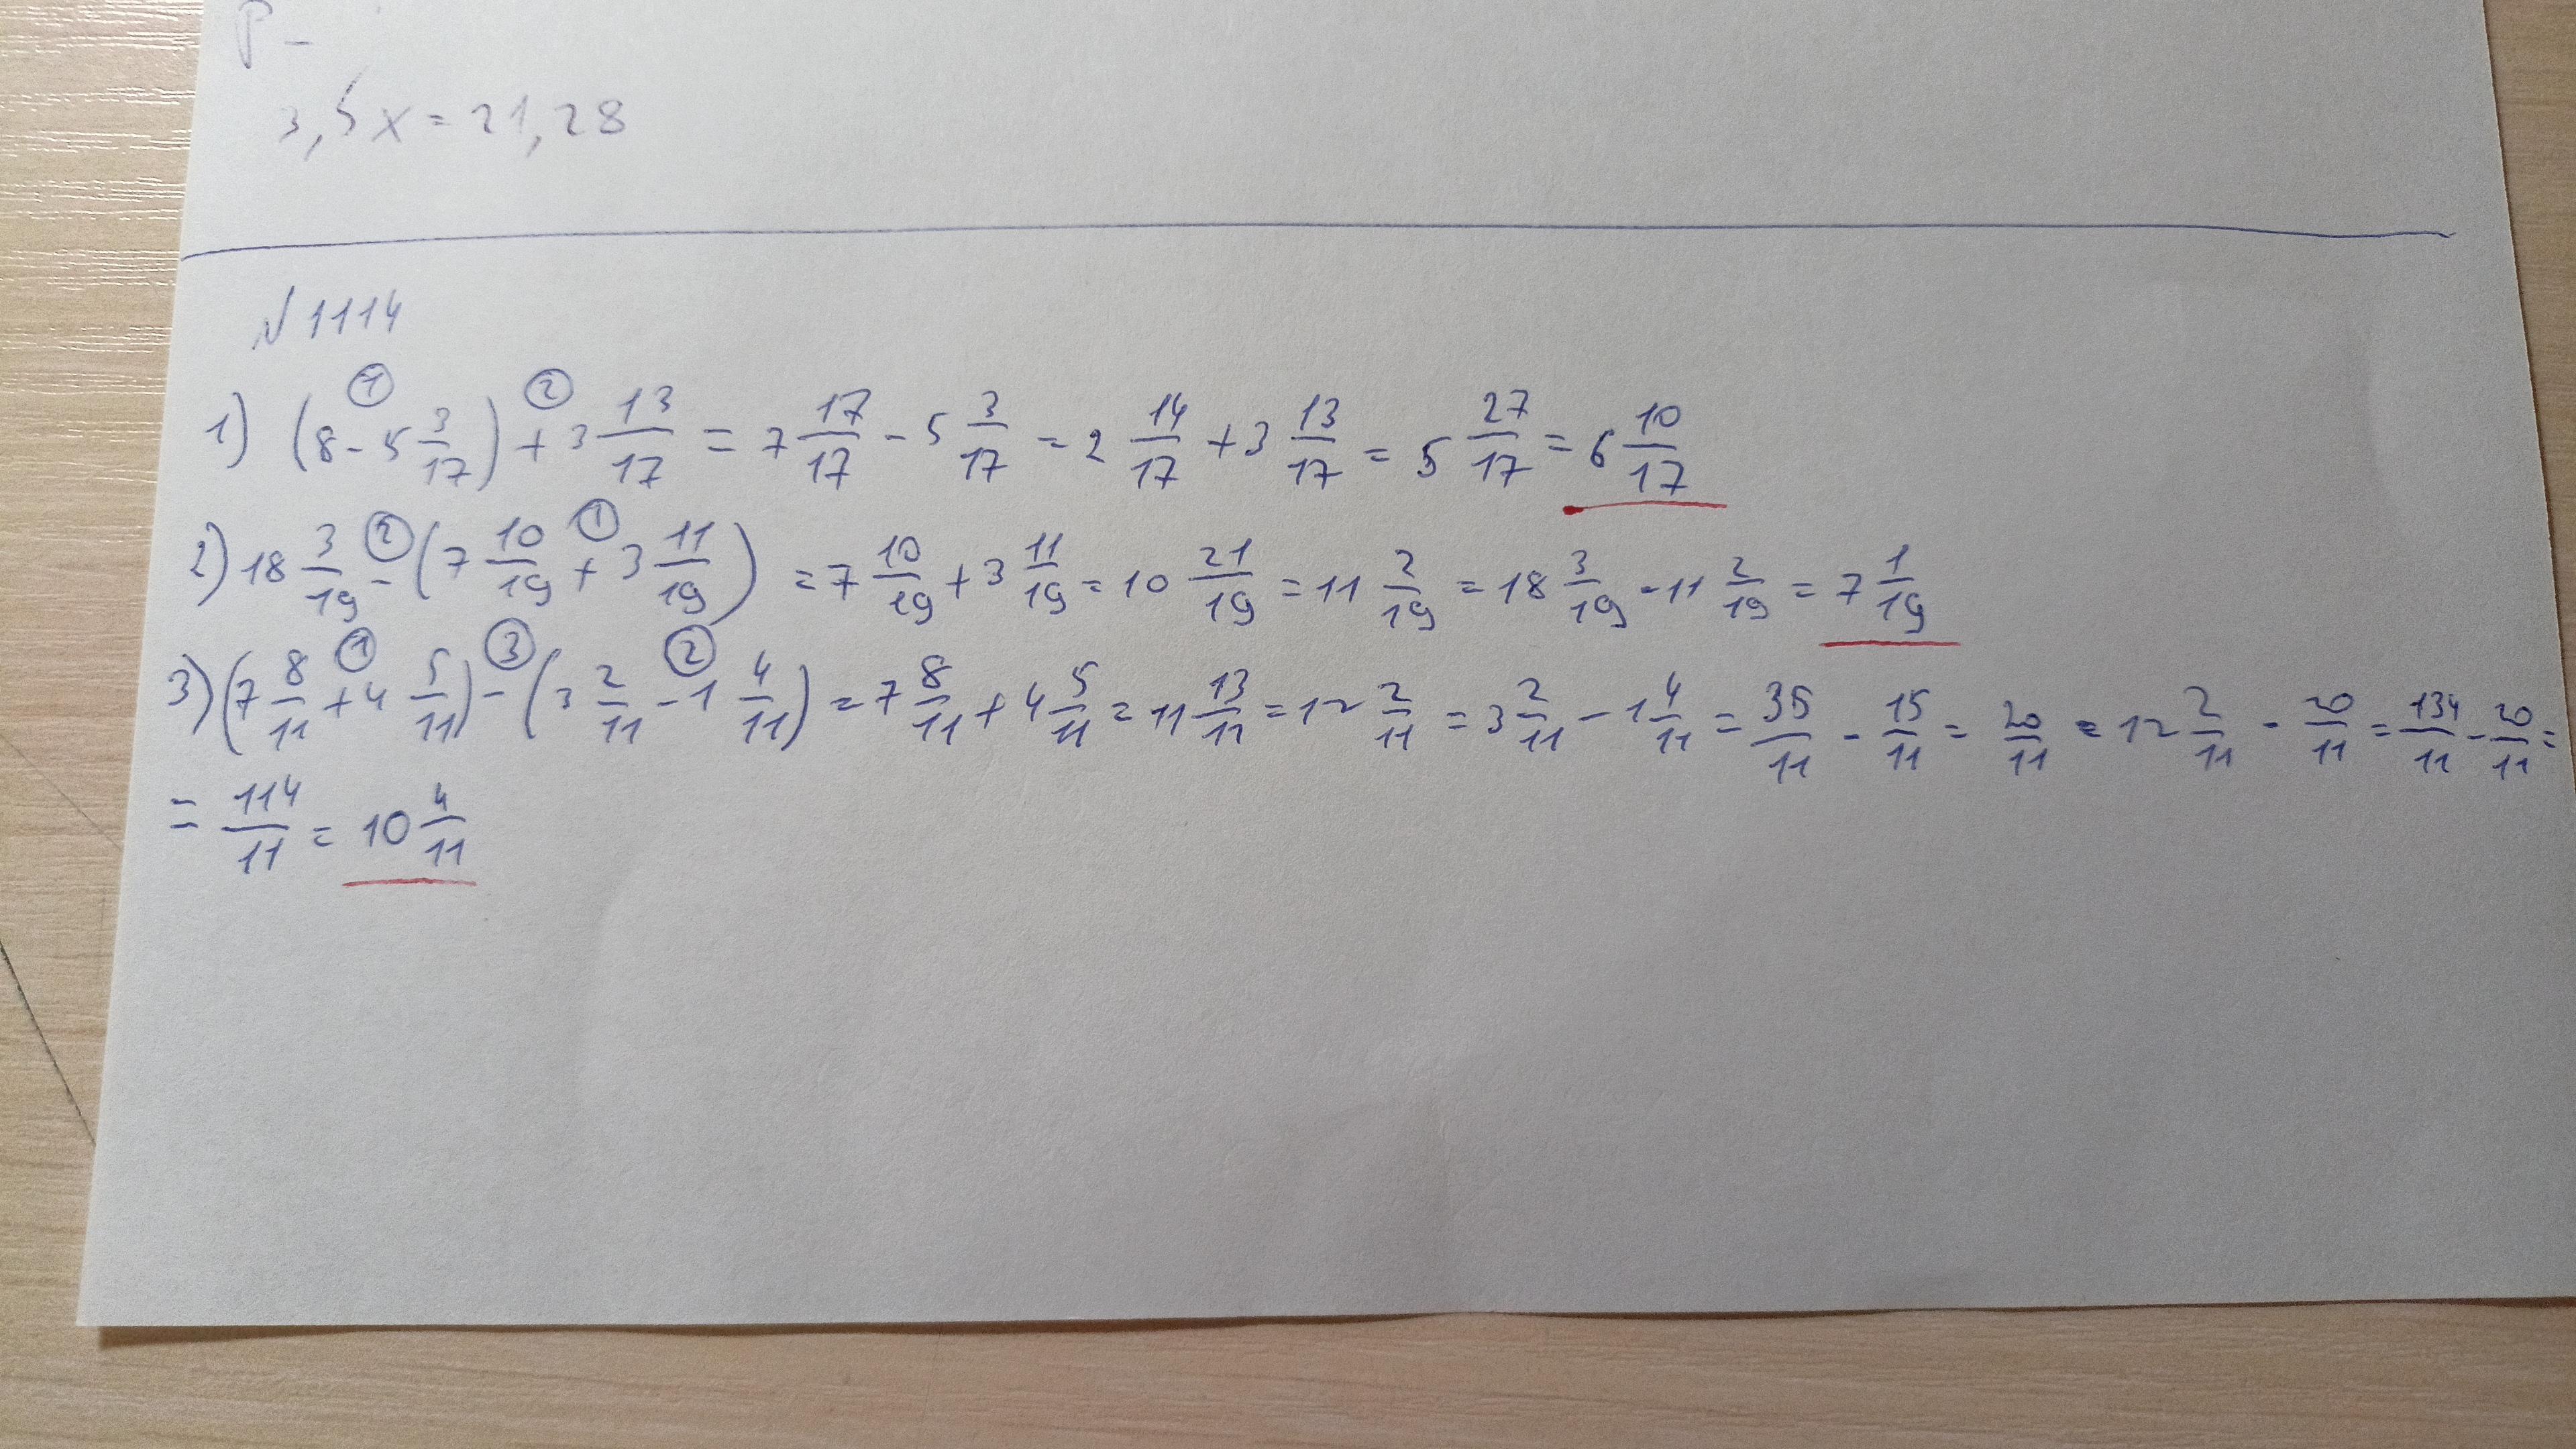 P -
3,5x = 21,28
№ 1114
1) (8 - 5 3/17) + 3 13/17 = 7 17/17 - 5 3/17 = 2 14/17 + 3 13/17 = 5 27/17 = 6 10/17
2) 18 3/19 - (7 10/19 + 3 11/19) = 7 10/19 + 3 11/19 = 10 21/19 = 11 2/19 = 18 3/19 - 11 2/19 = 7 1/19
3) (7 8/11 + 4 5/11) - (3 2/11 - 1 4/11) = 7 8/11 + 4 5/11 = 11 13/11 = 12 2/11 = 3 2/11 - 1 4/11 = 35/11 - 15/11 = 20/11 = 12 2/11 - 20/11 = 134/11 - 20/11 =
= 114/11 = 10 4/11